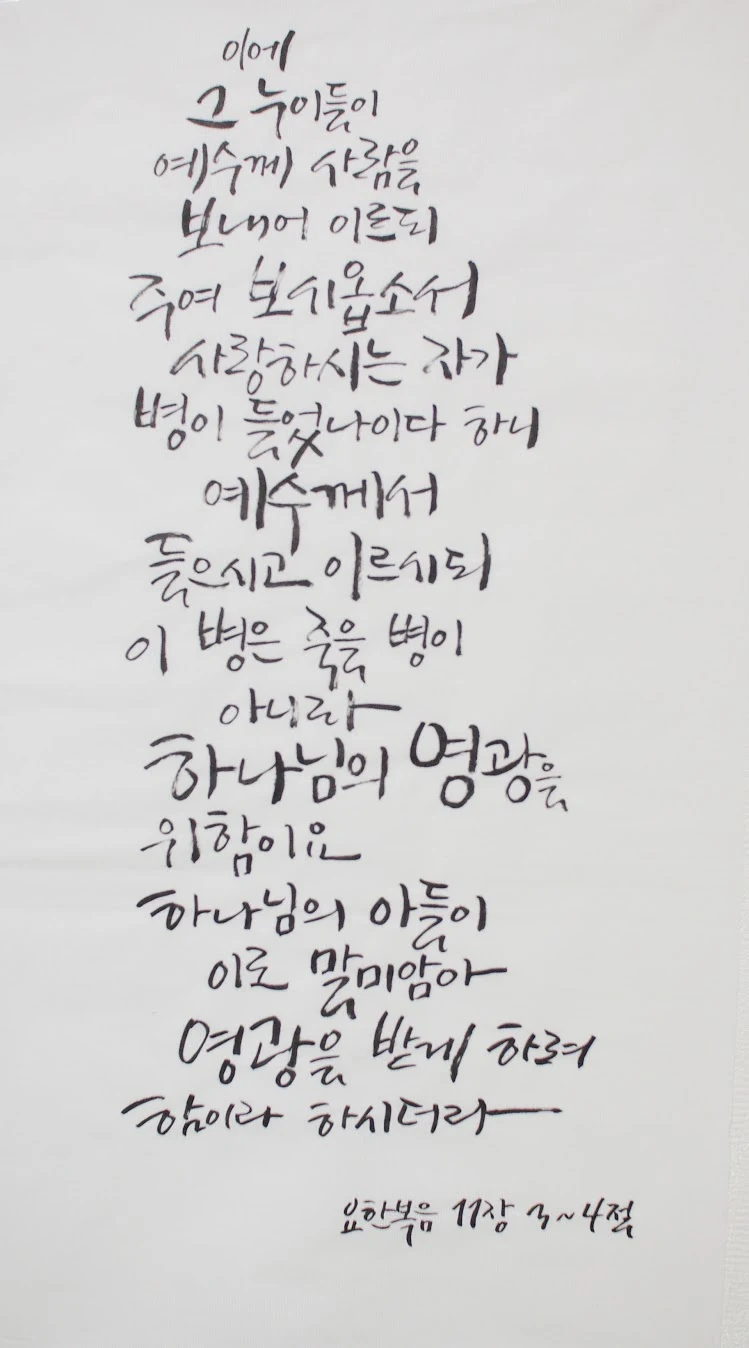 이에
그 누이들이
예수께 사람을
보내어 이르되
주여 보시옵소서
사랑하시는 자가
병이 들었나이다 하니
예수께서
들으시고 이르시되
이 병은 죽을 병이
아니라
하나님의 영광을
위함이요
하나님의 아들이
이로 말미암아
영광을 받게 하려
함이라 하시더라
요한복음 11장 3~4절